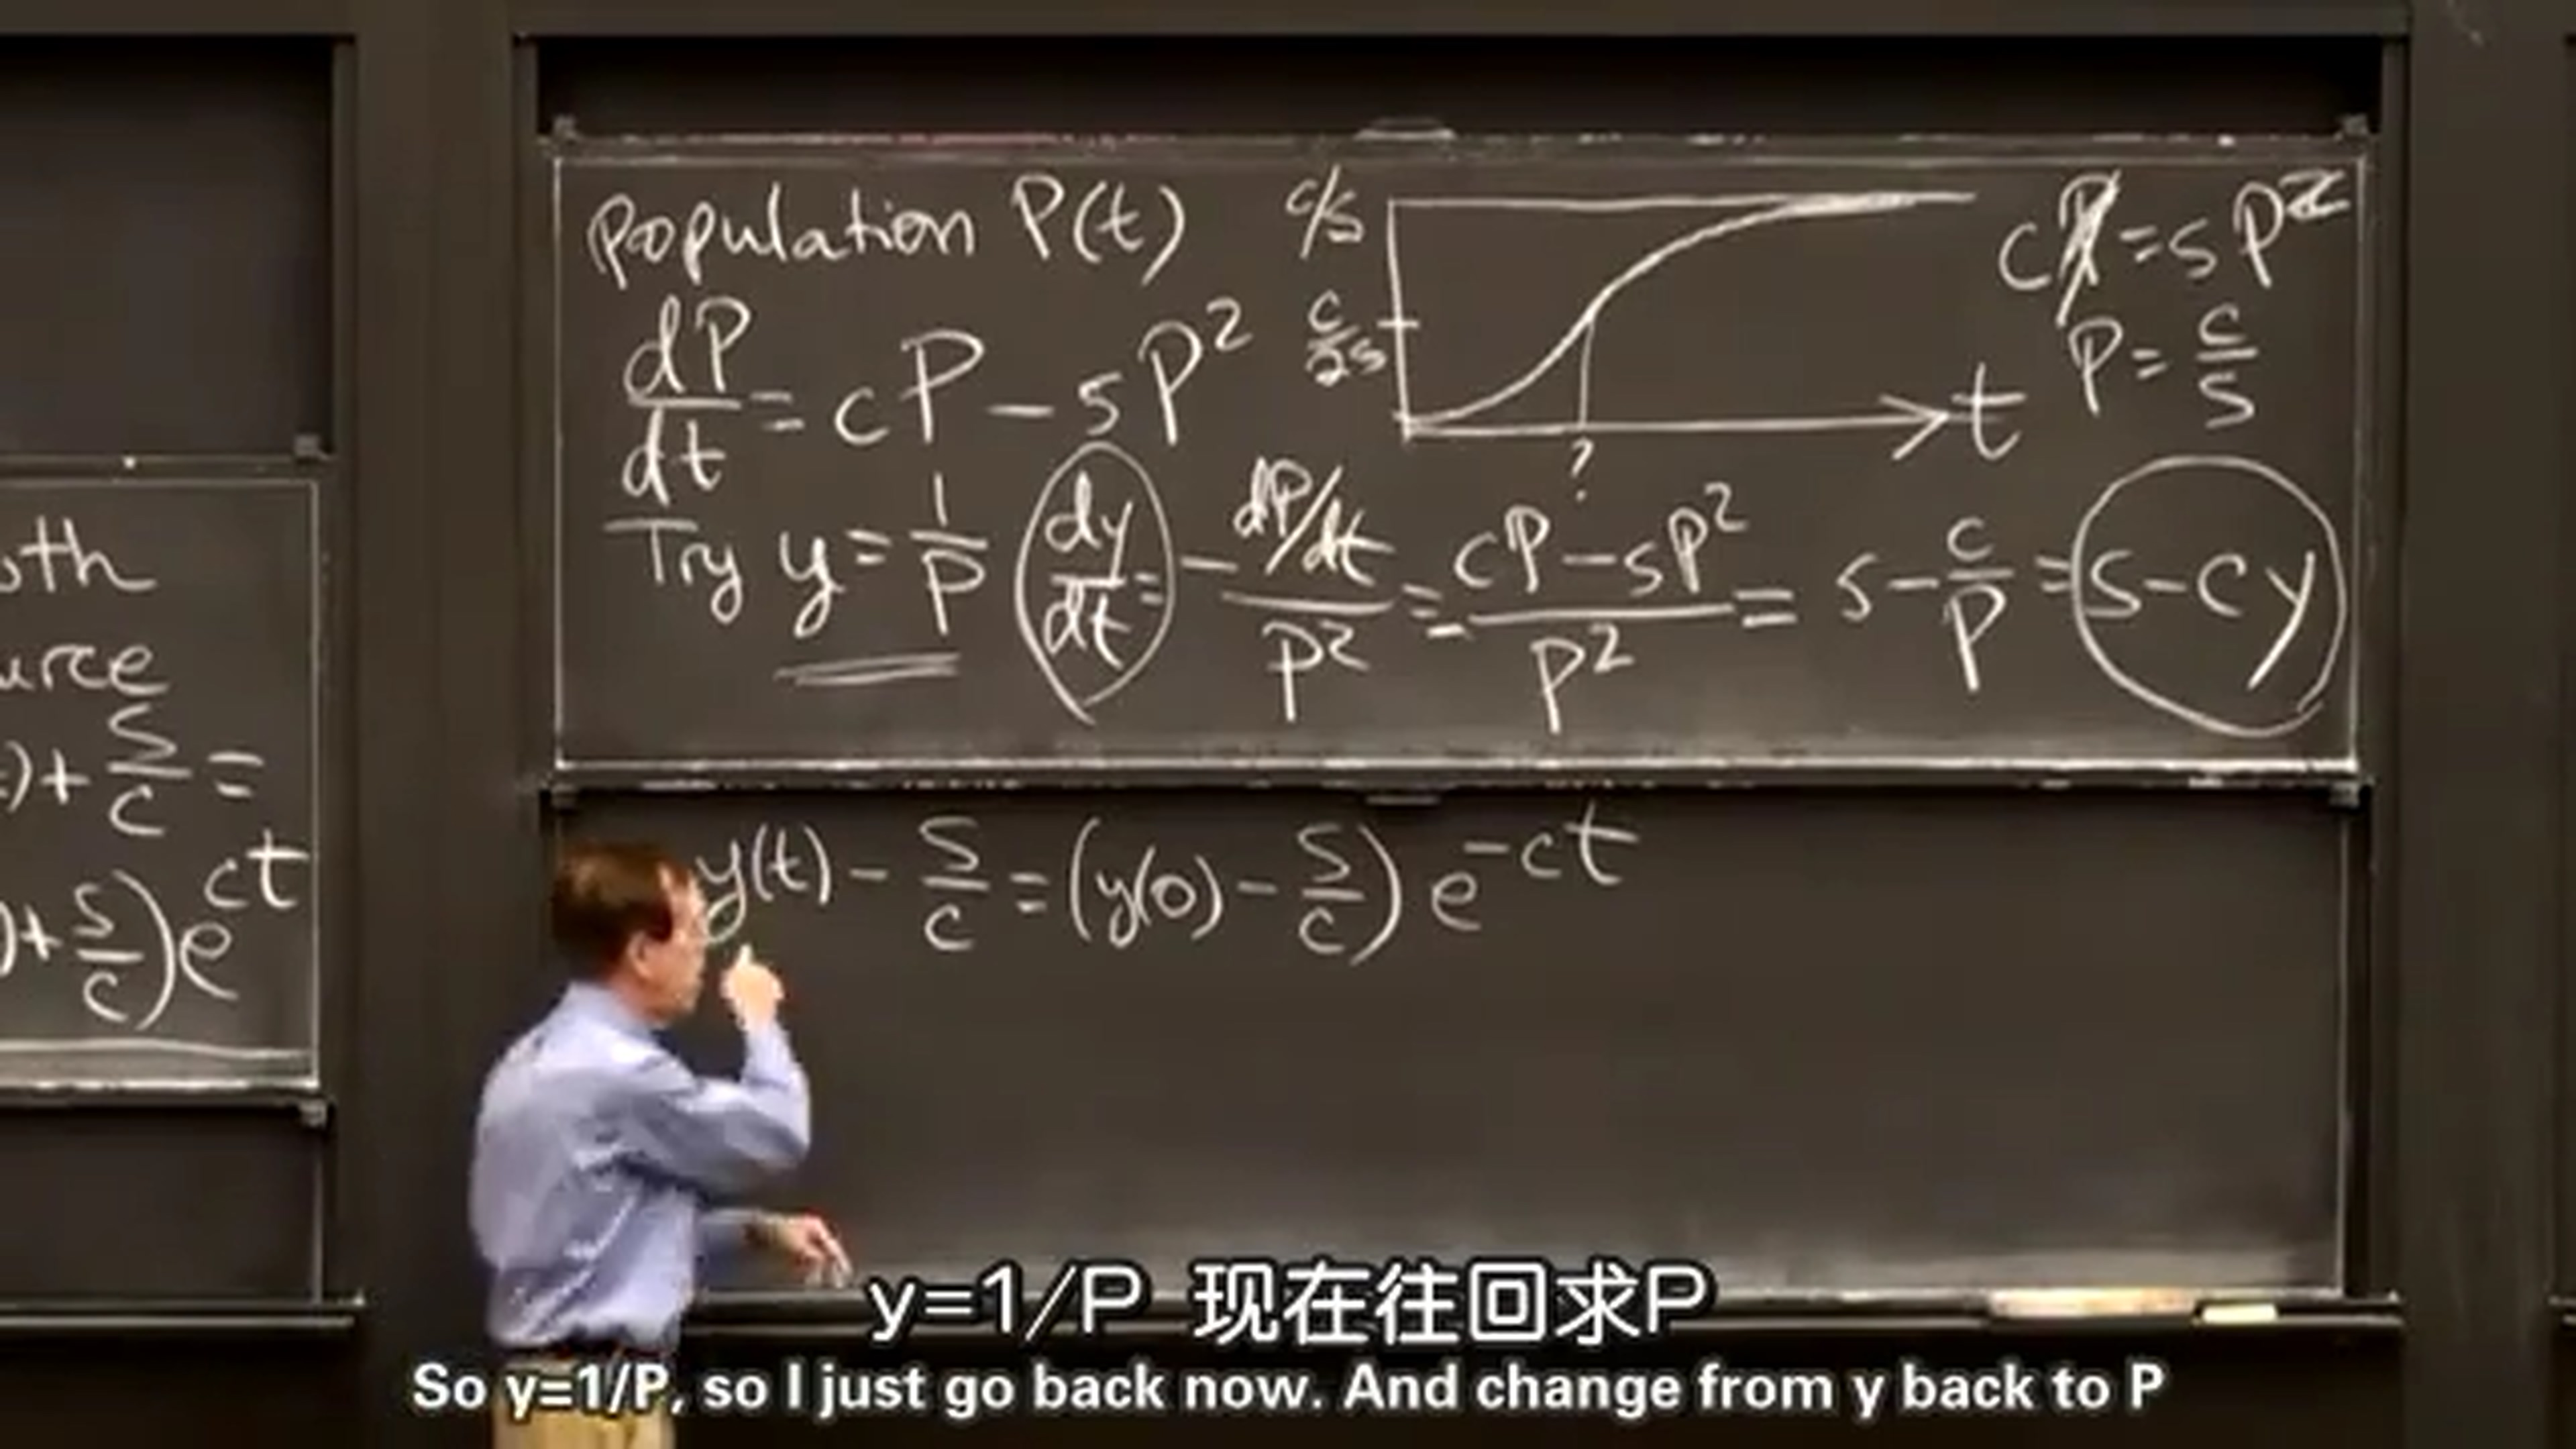 oth
urce
)+ S/C =
)+ S/C)e^ct
population P(t)
dP/dt = cP − sP²
c/s
c/2s
?
t
cP = sP²
P = c/s
Try y = 1/P dy/dt = − dP/dt / P² = − cP − sP² / P² = s − c/P = s − cy
y(t) − s/c = (y(0) − s/c) e^−ct
y=1/P 现在往回求P
So y=1/P, so I just go back now. And change from y back to P